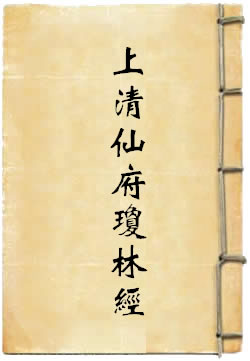 上清仙府瓊林經